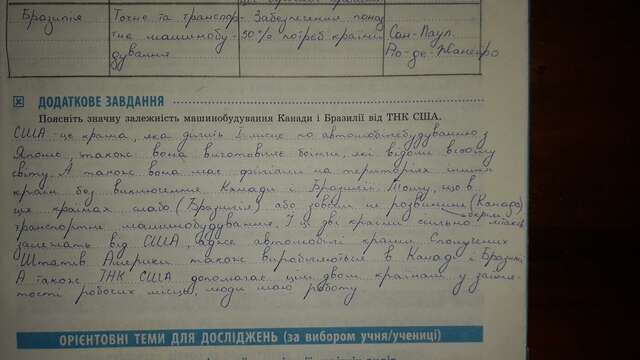 Бразилія Точне та транспор- Забезпечення понад Сан-Паул.
тне машинобу- 50% потреб країни Ріо-де-Жанейро
дування
ДОДАТКОВЕ ЗАВДАННЯ
Поясніть значну залежність машинобудування Канади і Бразилії від ТНК США.
США - це країна, яка ділить І місце по автомобілебудуванню з
Японією, також вона виготовляє боїнги, які відомі всьому
світу. А також вона має філіали на територіях інших
країн без виключення Канади і Бразилії. Тому, що в
цих країнах слабо (Бразилія), або зовсім не розвинене (Канада)
окрім літаків
транспортне машинобудування. І ці дві країни сильно
залежать від США, адже автомобілі країни Сполучених
Штатів Америки також виробляються в Канаді і Бразилії
А також ТНК США допомагає цим двом країнам у зайня-
тості робочих місць, люди мають роботу
ОРІЄНТОВНІ ТЕМИ ДЛЯ ДОСЛІДЖЕНЬ (за вибором учня/учениці)